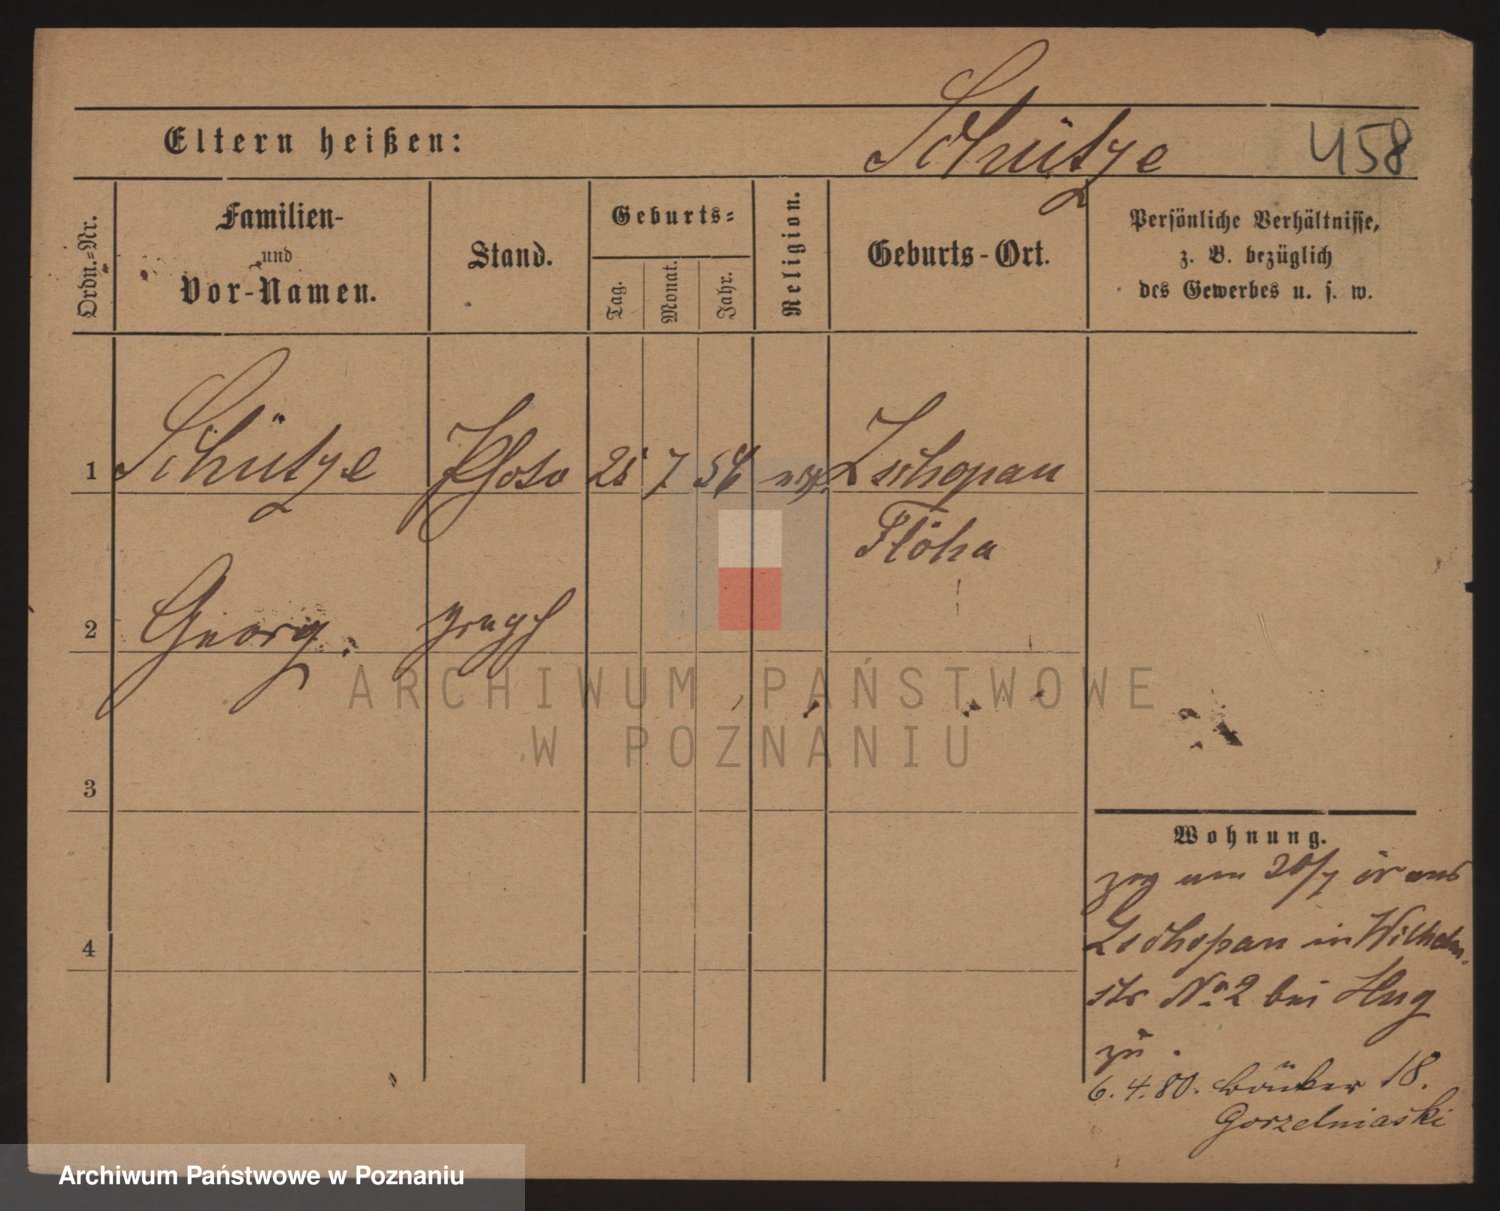 Schütze 458
Eltern heißen:
Ordn.=Nr.
Familien-
und
Vor-Namen.
Stand.
Geburts=
Tag.
Monat.
Jahr.
Religion.
Geburts-Ort.
Persönliche Verhältnisse,
z. B. bezüglich
des Gewerbes u. s. w.
1 Schütze Photo 25 7 54 Zschopau
Flöha
2 Georg. graph
3
4
Wohnung.
zog am 20/7 cr aus
Zschopau in Wilhelm-
str No 2 bei Hug
zu.
6. 4. 80. 18.
Gorzelniaski
ARCHIWUM PAŃSTWOWE
W POZNANIU
Archiwum Państwowe w Poznaniu